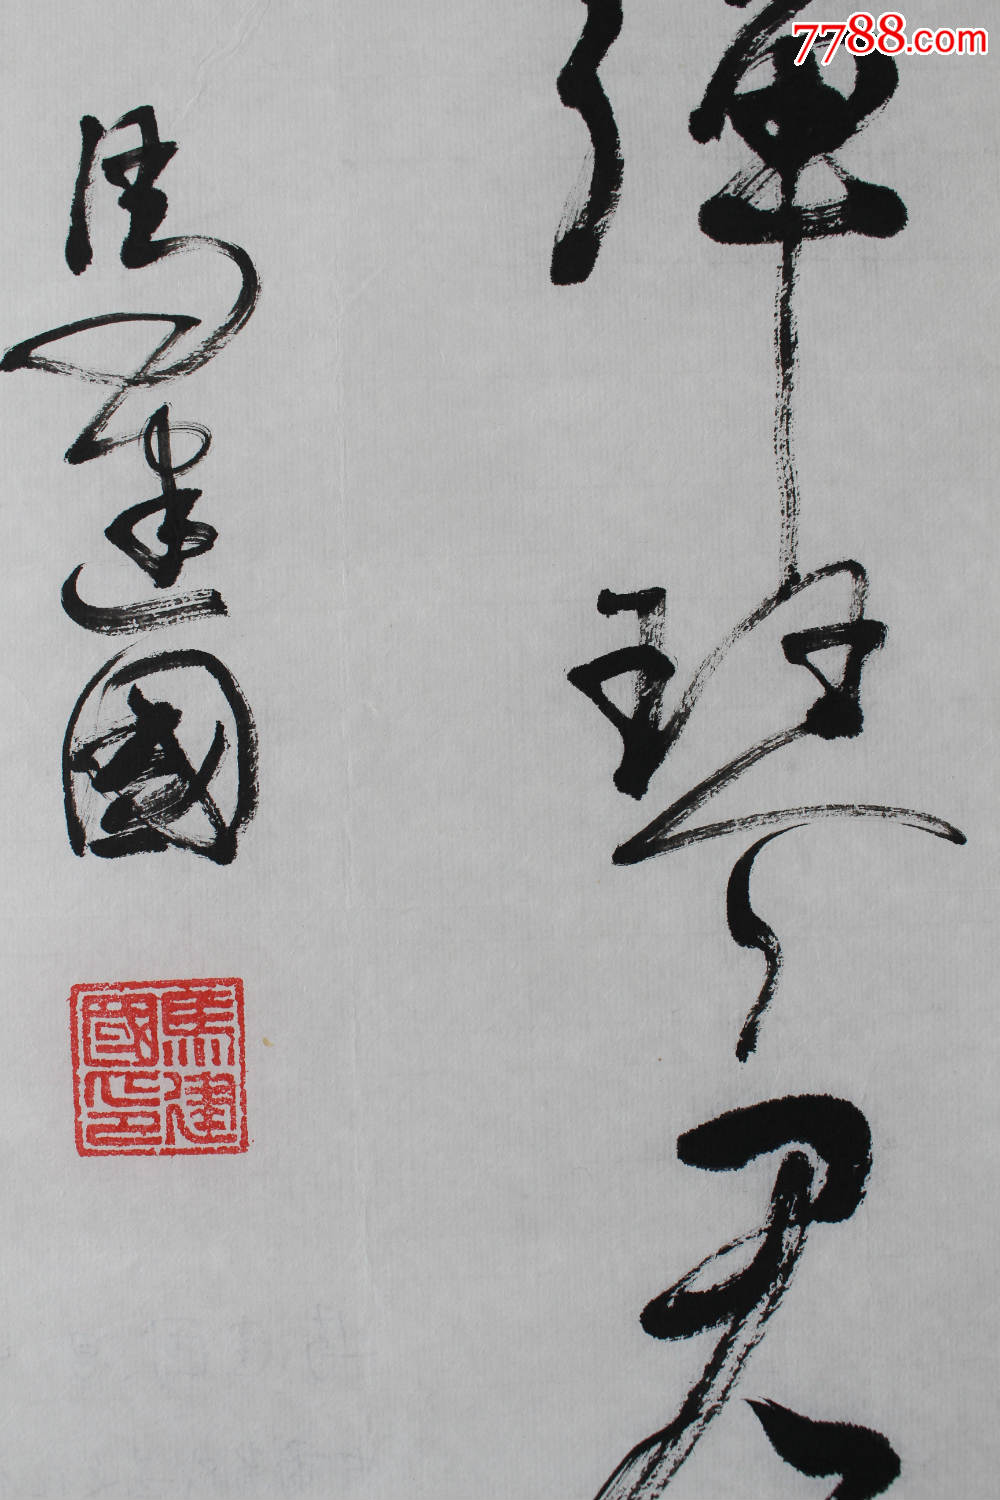 7788.com
彈琴
馬建國
馬建
國印